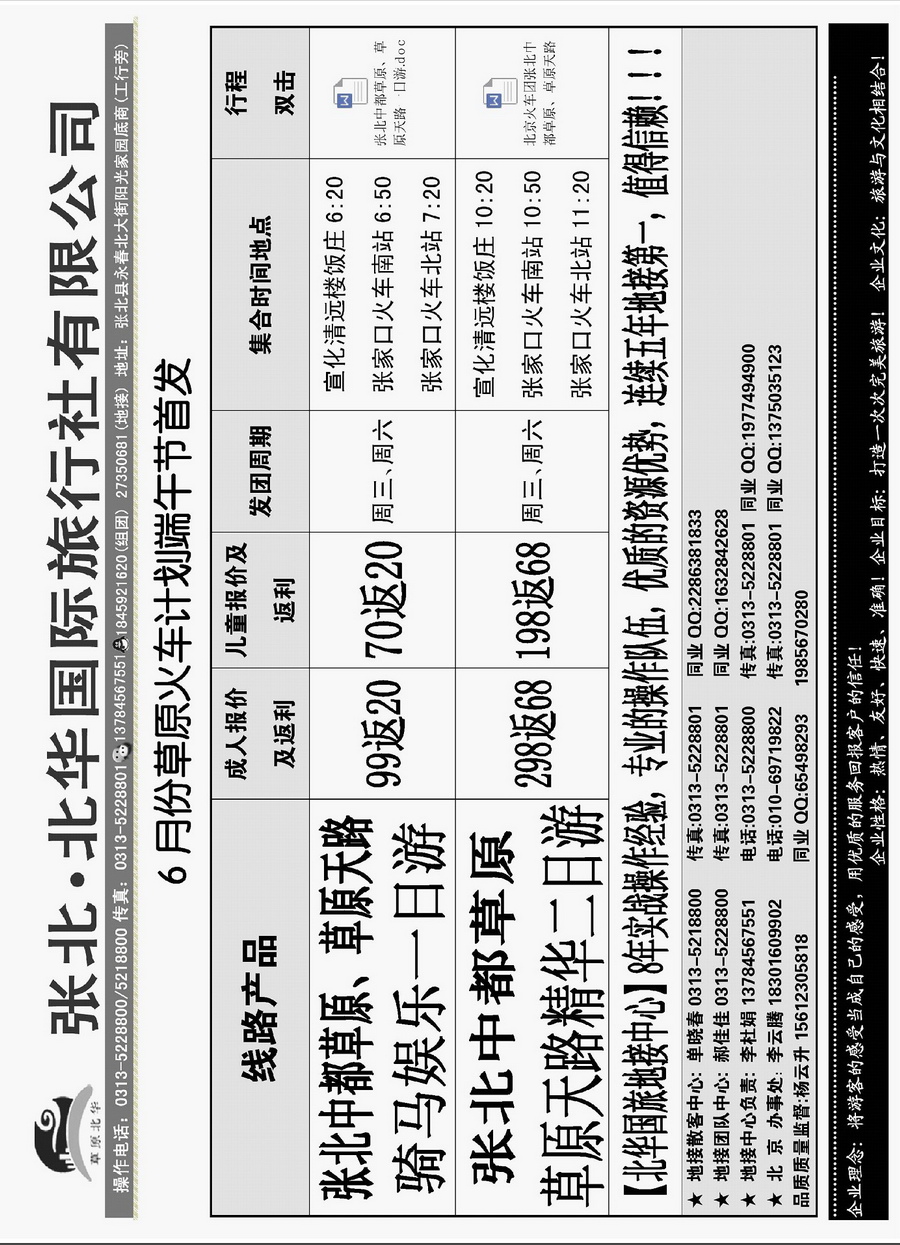 张北·北华国际旅行社有限公司
草原北华
操作电话：0313-5228800/5218800 传真：0313-5228801 13784567551 1845921620(组团) 27350681(地接) 地址：张北县永春北大街阳光家园底商(工行旁)
6月份草原火车计划端午节首发
线路产品
成人报价及返利
儿童报价及返利
发团周期
集合时间地点
行程双击
张北中都草原、草原天路
骑马娱乐一日游
99返20
70返20
周三、周六
宣化清远楼饭庄 6:20
张家口火车南站 6:50
张家口火车北站 7:20
张北中都草原、草
原天路一日游.doc
张北中都草原
草原天路精华二日游
298返68
198返68
周三、周六
宣化清远楼饭庄 10:20
张家口火车南站 10:50
张家口火车北站 11:20
北京火车团张北中
都草原、草原天路
【北华国旅地接中心】8年实战操作经验，专业的操作队伍，优质的资源优势，连续五年地接第一，值得信赖！！！
★ 地接散客中心：单晓春 0313-5218800 传真:0313-5228801 同业 QQ:2286381833
★ 地接团队中心：郝佳佳 0313-5228800 传真:0313-5228801 同业 QQ:1632842628
★ 地接中心负责：李杜娟 13784567551 电话:0313-5228800 传真:0313-5228801 同业 QQ:1977494900
★ 北 京 办事处：李云腾 18301609902 电话:010-69719822 传真:0313-5228801 同业 QQ:1375035123
品质质量监督:杨云升 15612305818 同业 QQ:65498293 1985670280
企业理念：将游客的感受当成自己的感受，用优质的服务回报客户的信任！
企业性格：热情、友好、快速、准确！企业目标：打造一次次完美旅游！ 企业文化：旅游与文化相结合！